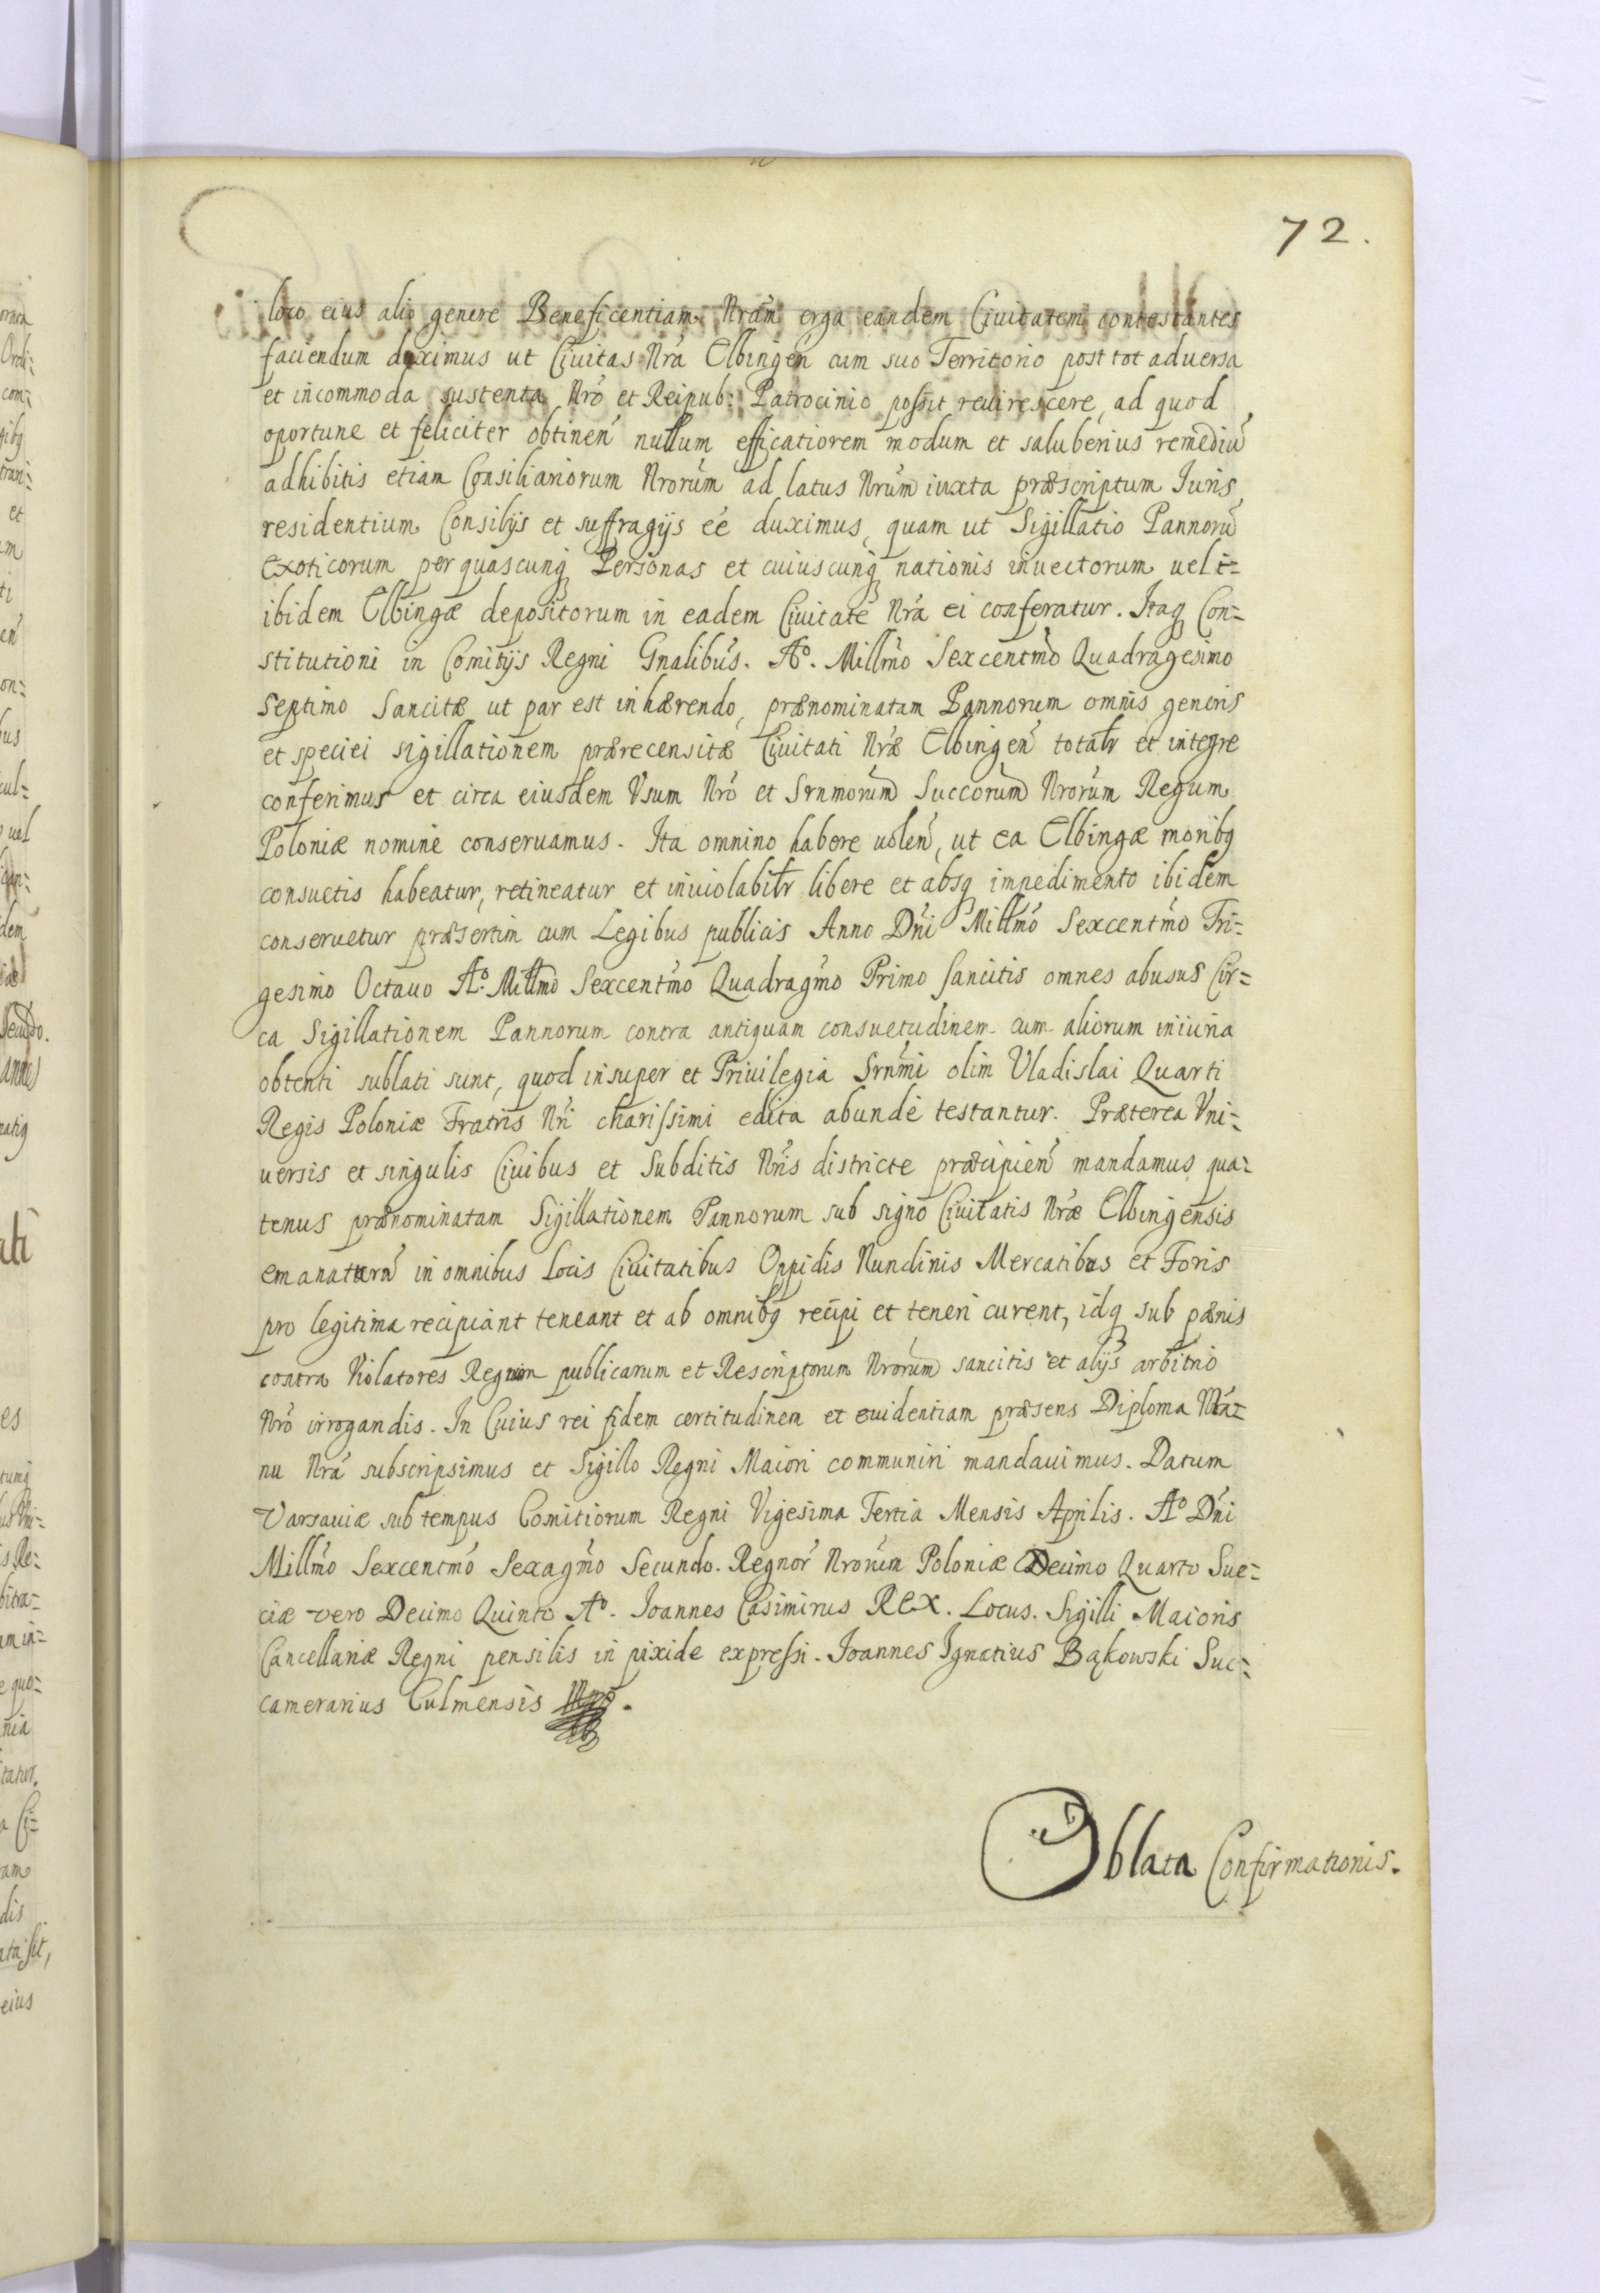 72.
loco eius alio genere Beneficentiam Nrãm erga eandem Ciuitatem contestantes
fauendum duximus ut Ciuitas Nrã Elbingeñ cum suo Territorio post tot aduersa
et incommoda sustenta Nrõ et Reipub: Patrocinio possit reuirescere, ad quod
oportune et feliciter obtineñ nullum efficatiorem modum et saluberius remediũ
adhibitis etiam Consiliariorum Nrorũm ad latus Nrũm iuxta præscriptum Iuris
residentium Consilijs et suffragijs eẽ duximus, quam ut Sigillatio Pannorũ
exoticorum per quascunq Personas et cuiuscunq nationis inuectorum uel i=
ibidem Elbingæ depositorum in eadem Ciuitate Nrã ei conferatur. Itaq Con=
stitutioni in Comitijs Regni Gnalibus. Aº. Millmo Sexcentmo Quadragesimo
Septimo Sancitæ ut par est inhærendo, prænominatam Pannorum omnis generis
et speciei sigillationem prærecensitæ Ciuitati Nræ̃ Elbingeñ totalr et integre
conferimus et circa eiusdem Vsum Nrõ et Srnmorũm Succorũm Nrorũm Regum
Poloniæ nomine conseruamus. Ita omnino habere uoleñ, ut ea Elbingæ moribq
consuetis habeatur, retineatur et inuiolabilr libere et absq impedimento ibidem
conseruetur præsertim cum Legibus publicis Anno Dñi Millmõ Sexcentmõ Tri=
gesimo Octauo Aº. Millmo Sexcentmõ Quadragmõ Primo sancitis omnes abusus Cir=
ca Sigillationem Pannorum contra antiquam consuetudinem cum aliorum iniuria
obtenti sublati sunt, quod insuper et Priuilegia Srnmĩ olim Vladislai Quarti
Regis Poloniæ Fratris Nrĩ charissimi edita abunde testantur. Præterea Vni=
uersis et singulis Ciuibus et Subditis Nrĩs districte præcipieñ mandamus qua=
tenus prænominatam Sigillationem Pannorum sub signo Ciuitatis Nræ̃ Elbingensis
emanaturã in omnibus Locis Ciuitatibus Oppidis Nundinis Mercatibus et Foris
pro legitima recipiant teneant et ab omnibq recipi et teneri curent, idq sub pænis
contra Violatores Regnum publicarum et Rescriptorum Nrorũm sancitis et alijs arbitrio
Nrõ irrogandis. In Cuius rei fidem certitudinem et euidentiam præsens Diploma Ma=
nu Nrã subscripsimus et Sigillo Regni Maiori communiri mandauimus. Datum
Varsauiæ sub tempus Comitiorum Regni Vigesima Tertia Mensis Aprilis. Aº Dñi
Millmõ Sexcentmõ Sexagmõ Secundo. Regnor̃ Nrorũm Poloniæ Decimo Quarto Sue=
ciæ vero Decimo Quinto Aº. Ioannes Casimirus REX. Locus. Sigilli Maioris
Cancellariæ Regni pensilis in pixide expressi. Ioannes Ignatius Bąkowski Suc=
camerarius Culmensis mpp.
Oblata Confirmationis.